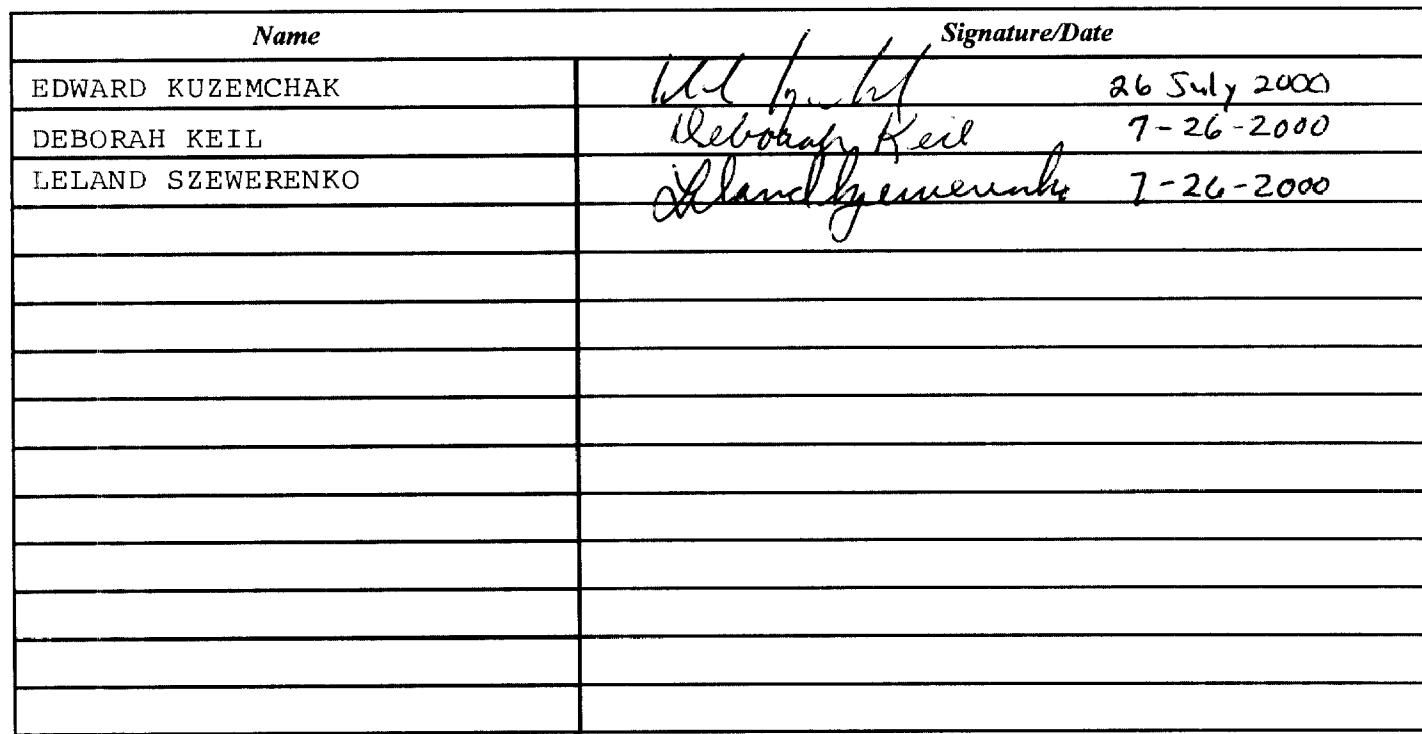 Name Signature/Date
EDWARD KUZEMCHAK 26 July 2000
DEBORAH KEIL Deborah Keil 7-26-2000
LELAND SZEWERENKO Leland Szewerenko 7-26-2000